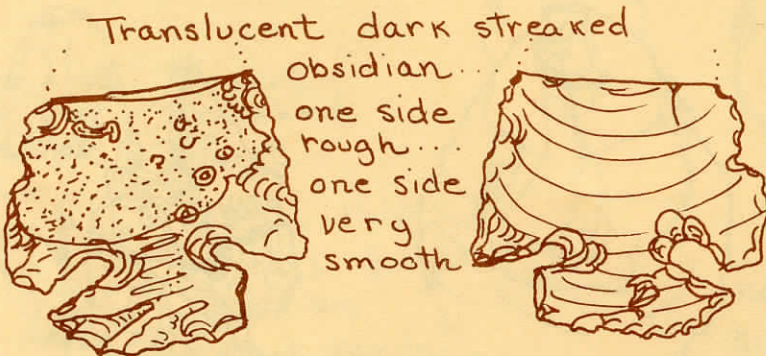 Translucent dark streaked
obsidian...
one side
rough...
one side
very
smooth